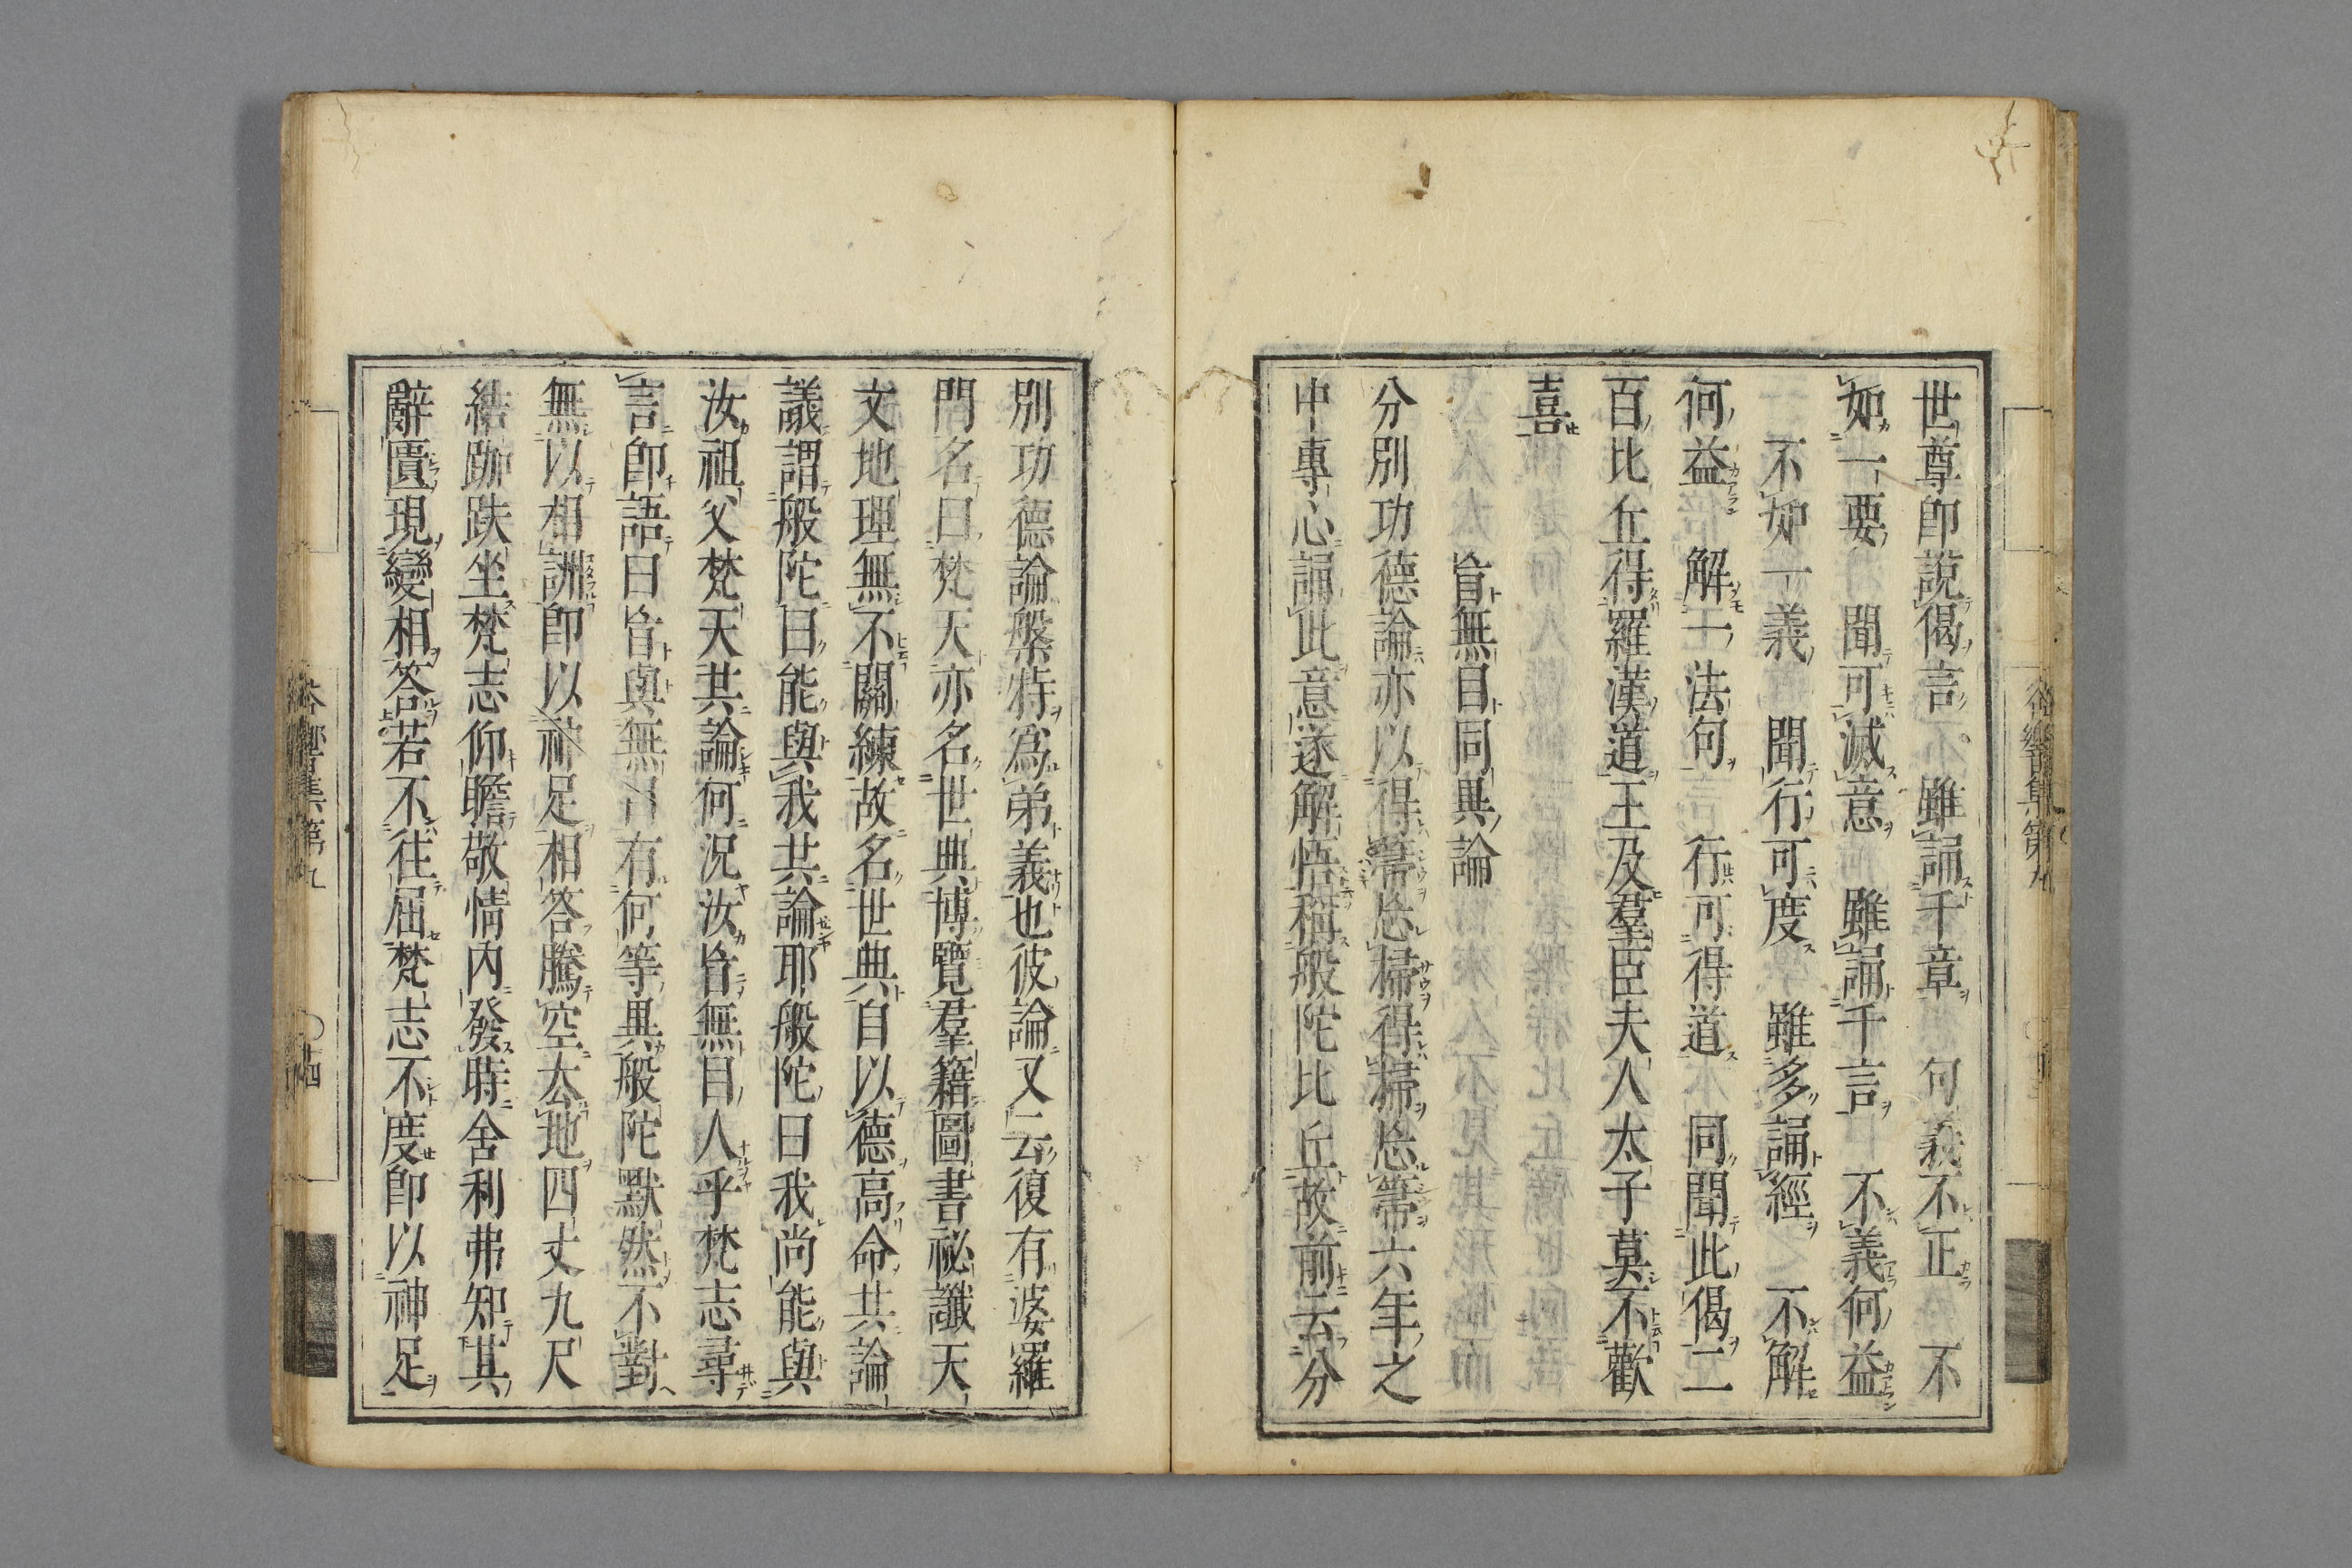 世尊即說偈言　雖誦千章　句義不正　不
如一要　聞可滅意　雖誦千言　不義何益
不如一義　聞行可度　雖多誦經　不解
何益　解一法句　行可得道　同聞此偈二
百比丘得羅漢道王及羣臣夫人太子莫不歡
喜
盲無目同異論
分別功德論亦以得箒忘掃得掃忘箒六年之
中專心誦此意遂解悟稱般陀比丘故前云分
別功德論槃特為弟義也彼論又云復有婆羅
門名曰梵天亦名世典博覽羣籍圖書祕讖天
文地理無不關練故名世典自以德高命共論
議謂般陀曰能與我共論耶般陀曰我尚能與
汝祖父梵天共論何況汝盲無目人乎梵志尋
言即語曰盲與無目有何等異般陀默然不對
無以相詶即以神足相答騰空去地四丈九尺
結跏趺坐梵志仰瞻敬情內發時舍利弗知其
辭匱現變相答若不往屆梵志不度即以神足
谷響集第九
十四
谷響集第九